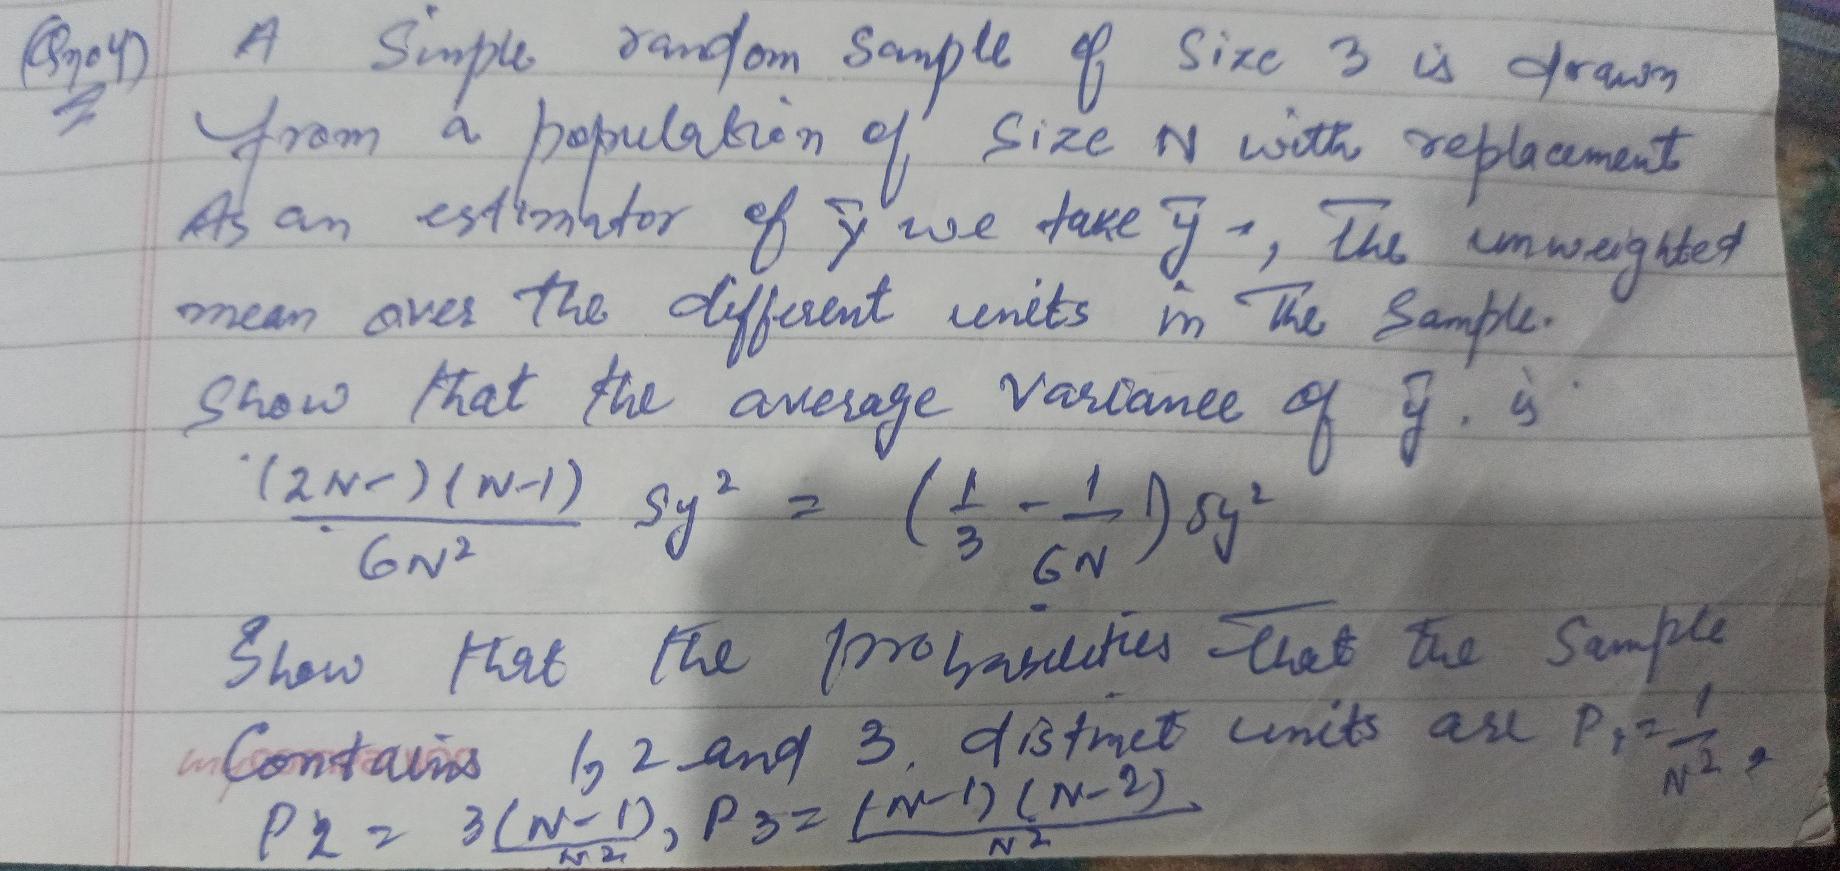 (Qno4) A Simple random Sample of Size 3 is drawn
from a population of Size N with replacement
As an estimator of ȳ we take ȳ, The unweighted
mean over the different units in The Sample.
Show that the average Variance of ȳ. is
(2N-)(N-1)/6N² Sy² = (1/3 - 1/6N) Sy²
Show that the probabilities that the Sample
Contains 1, 2 and 3, distinct units are P1 = 1/N²,
P2 = 3(N-1)/N², P3 = (N-1)(N-2)/N²